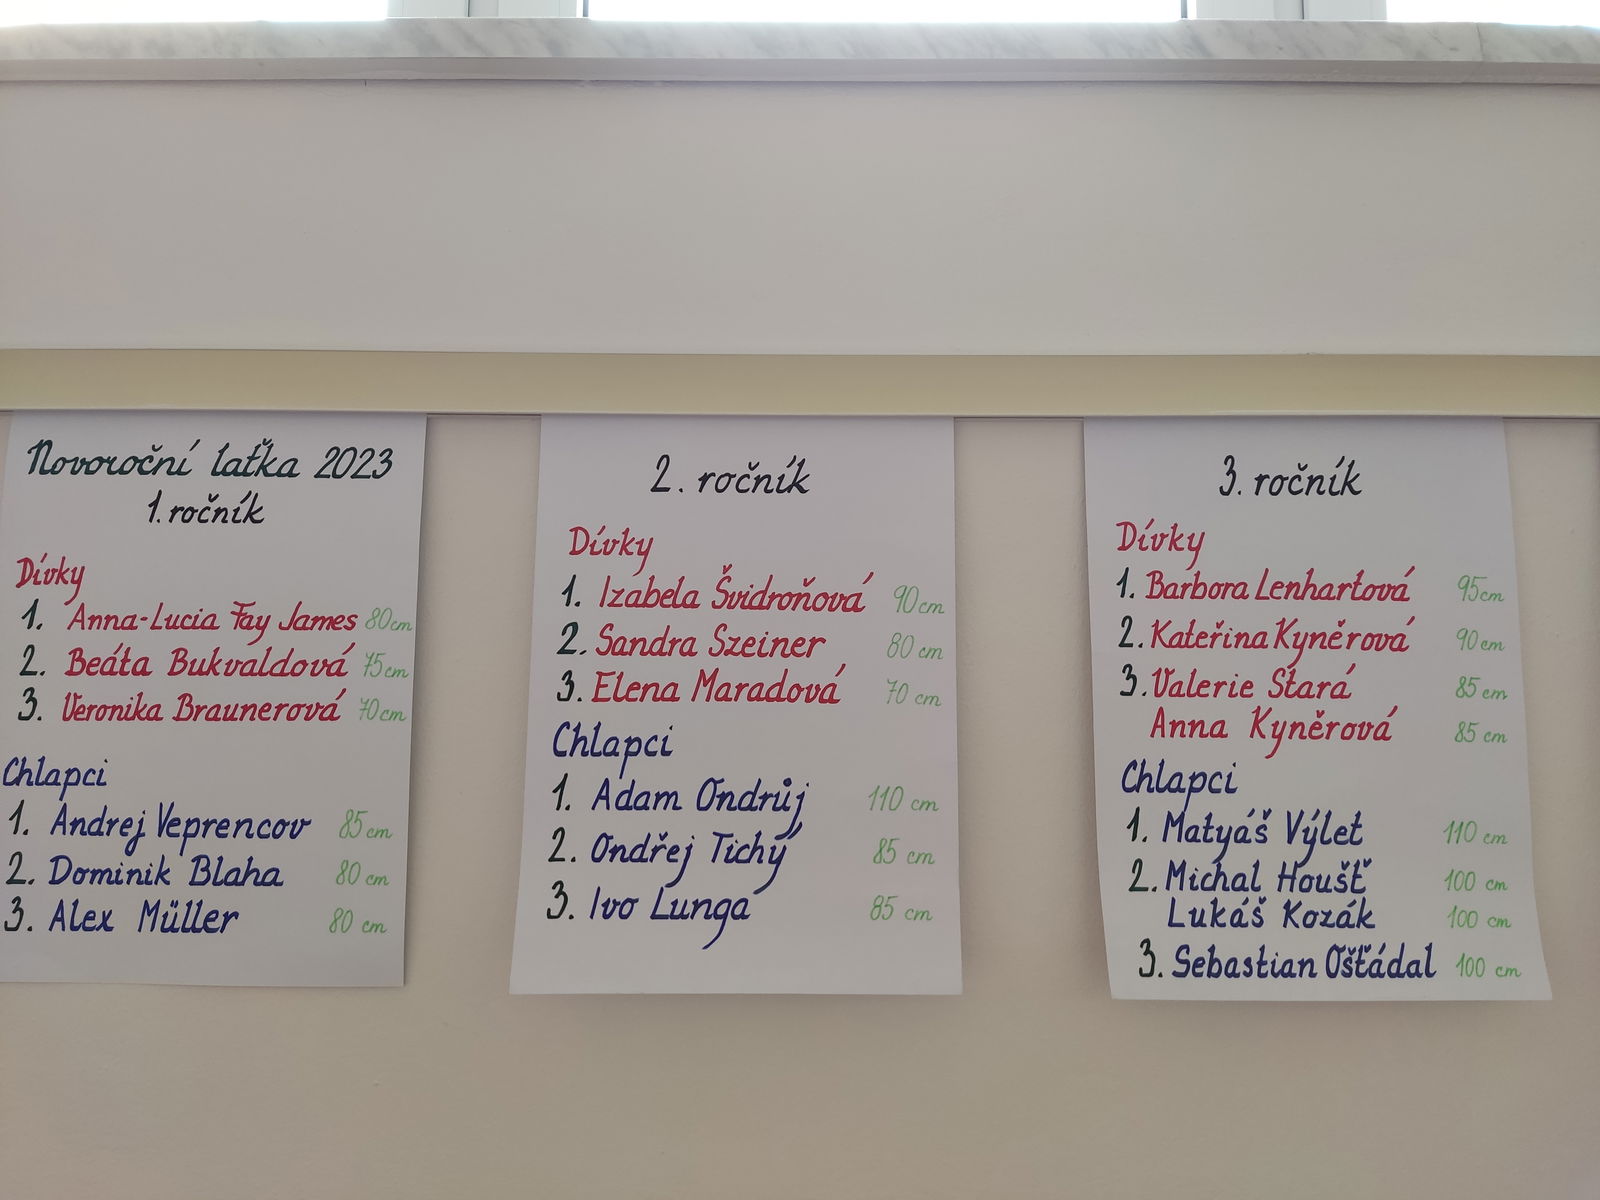 Novoroční laťka 2023
1. ročník
Dívky
1. Anna-Lucia Fay James 80cm
2. Beáta Bukvaldová 75cm
3. Veronika Braunerová 70cm
Chlapci
1. Andrej Veprencov 85cm
2. Dominik Blaha 80 cm
3. Alex Müller 80 cm
2. ročník
Dívky
1. Izabela Švidroňová 90cm
2. Sandra Szeiner 80 cm
3. Elena Maradová 70 cm
Chlapci
1. Adam Ondrůj 110 cm
2. Ondřej Tichý 85 cm
3. Ivo Lunga 85 cm
3. ročník
Dívky
1. Barbora Lenhartová 95cm
2. Kateřina Kyněrová 90cm
3. Valerie Stará 85 cm
Anna Kyněrová 85 cm
Chlapci
1. Matyáš Výlet 110 cm
2. Michal Houšť 100 cm
Lukáš Kozák 100 cm
3. Sebastian Ošťádal 100 cm